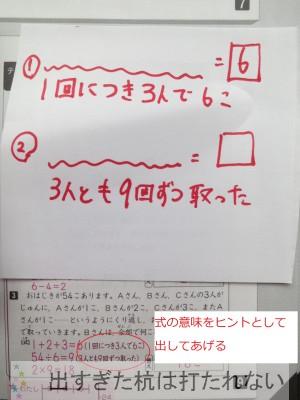 ① = 6
1回につき3人で6こ
② = □
3人とも9回ずつ取った
6-4=2
3 おはじきが54こあります。Aさん、Bさん、Cさんの3人が
じゅんに、Aさんが1こ、Bさんが2こ、Cさんが3こ、またA
さんが1こ
て取っていきます。Bさんは、全部で何こ
1+2+3=6(1回につき3人で6こ)
54÷6=9(3人とも9回ずつ取った)
2×9=18
式の意味をヒントとして
出してあげる
出すぎた杭は打たれない